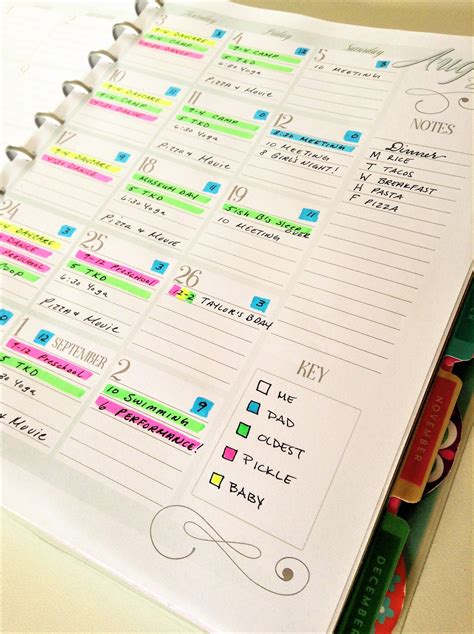 Friday
Saturday
Aug
3
9-4 DAYCARE
9-4 CAMP
4
9-4 CAMP
5 TKD
6:30 Yoga
Pizza & Movie
5
10 MEETING
10
9-4 DAYCARE
9-4 CAMP
11
9-4 CAMP
5 TKD
6:30 Yoga
Pizza & Movie
12
8:30 MEETING
10 MEETING
8 GIRL'S NIGHT!
17
9-4 DAYCARE
18
MUSEUM DAY
5 TKD
6:30 Yoga
Pizza & Movie
19
10 MEETING
24
9-4 DAYCARE
25
9-12 Preschool
5 TKD
6:30 Yoga
Pizza & Movie
26
3
12-2 TAYLOR'S BDAY
1 SEPTEMBER
9-12 Preschool
5 TKD
6:30 Yoga
Pizza & Movie
2
9
10 SWIMMING
6 PERFORMANCE!
NOTES
Dinner
M RICE
T TACOS
W BREAKFAST
H PASTA
F PIZZA
KEY
ME
DAD
OLDEST
PICKLE
BABY
NOVEMBER
DECEMBER